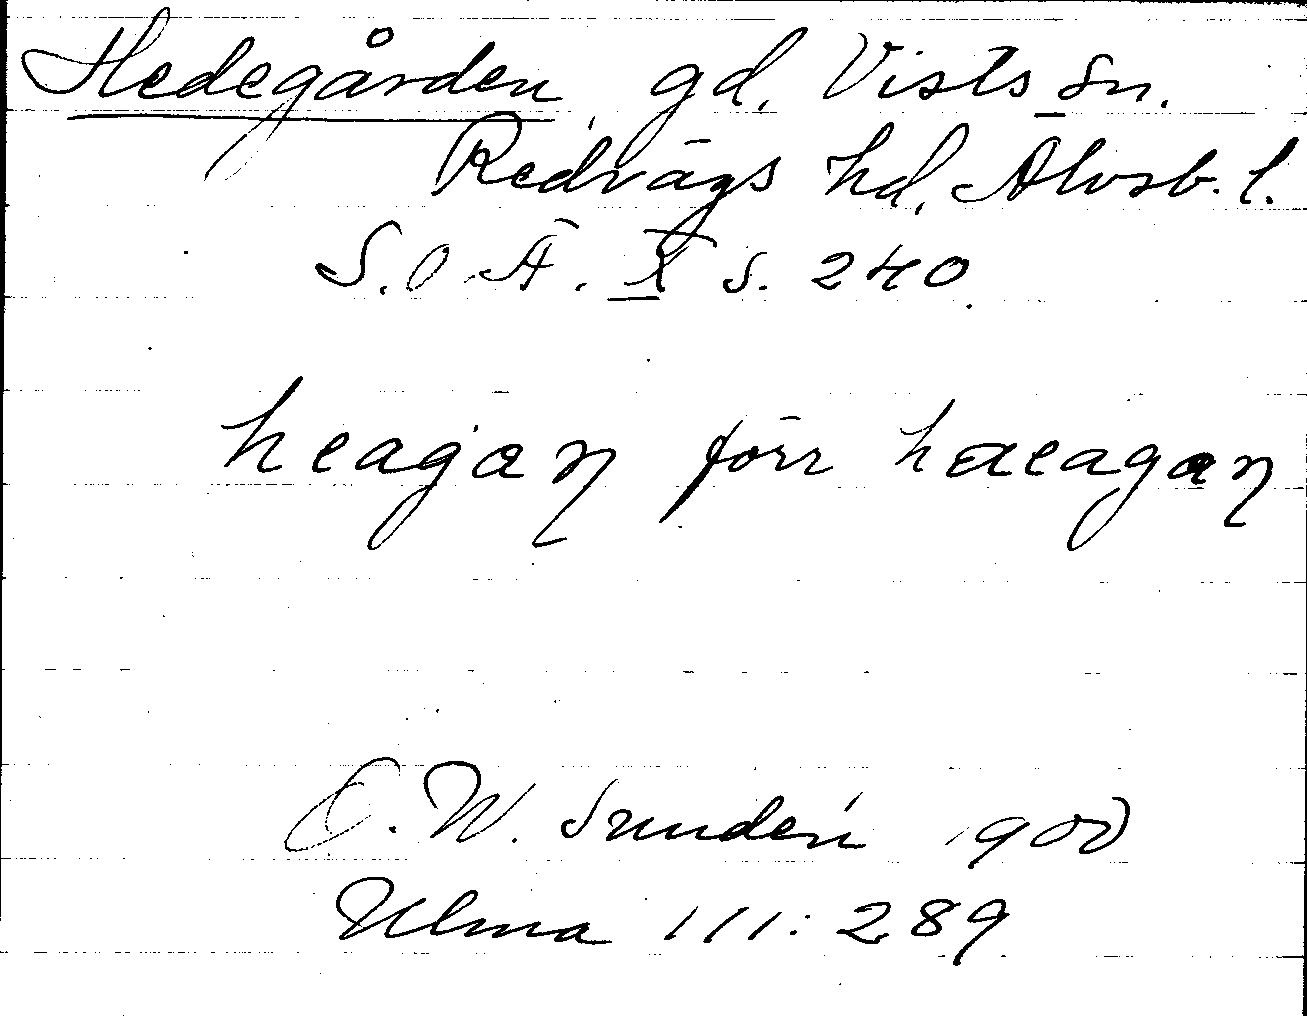 Hedegården, gd, Vists sn.
Redvägs hd, Älvsb. l.
S.O.Ä. X s. 240
heagaŋ förr haeagaŋ
D. W. Sundén 1900
Ulma 111:289